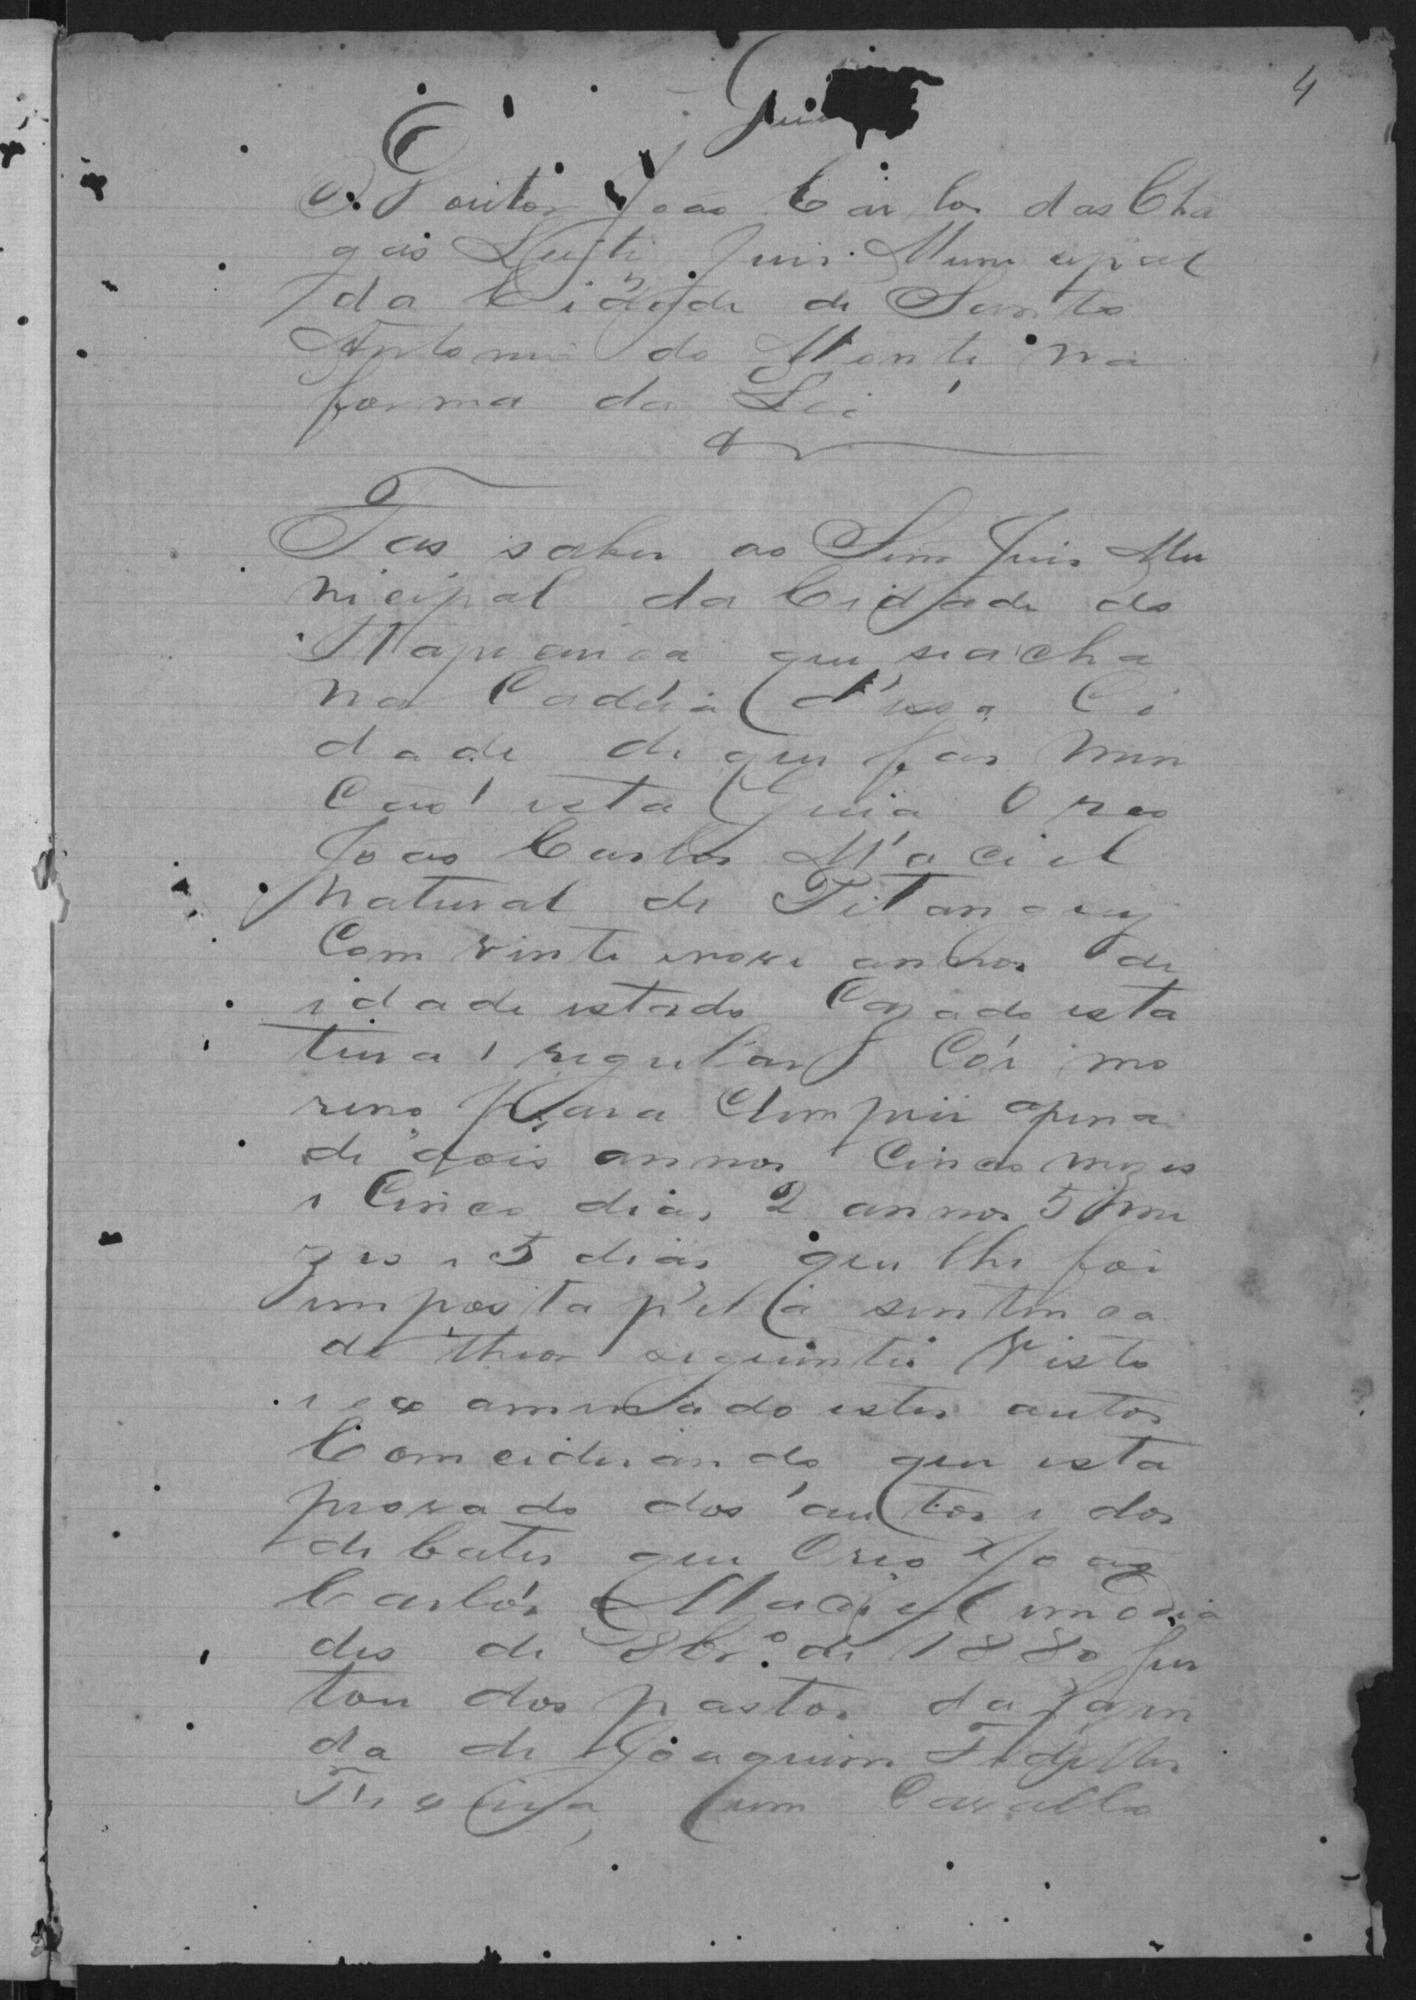 4
Guia
O Doutor João Carlos das Cha
gas Juis Municipal
da Cidade de Santo
Antonio do Monte na
forma da Lei
Fas saber ao Senr Juis Mu
nicipal da Cidade de
Itapicirica que se acha
na Cadêia d'essa Ci
dade de que fas men
cão esta Guia O reo
João Carlos Maciel
natural de Pitanguy
Com vinte enove annos de
idade estado Cazado esta
tura regular Côr mo
reno para Cumprir apena
de dois annos Cinco mezes
e Cinco dias 2 annos 5 me
zes e 5 dias que lhe foi
imposta pela sentenca
do theor seguinte Visto
e examinado estes autos
Comciderando que esta
provado dos autos e dos
debates que Oreo João
Carlos Maciel em o dia
des de 8br.o de 1880 fur
tou dos pastos da Fazen
da de Joaquim Fidelles
Teixeira, hum Cavallo